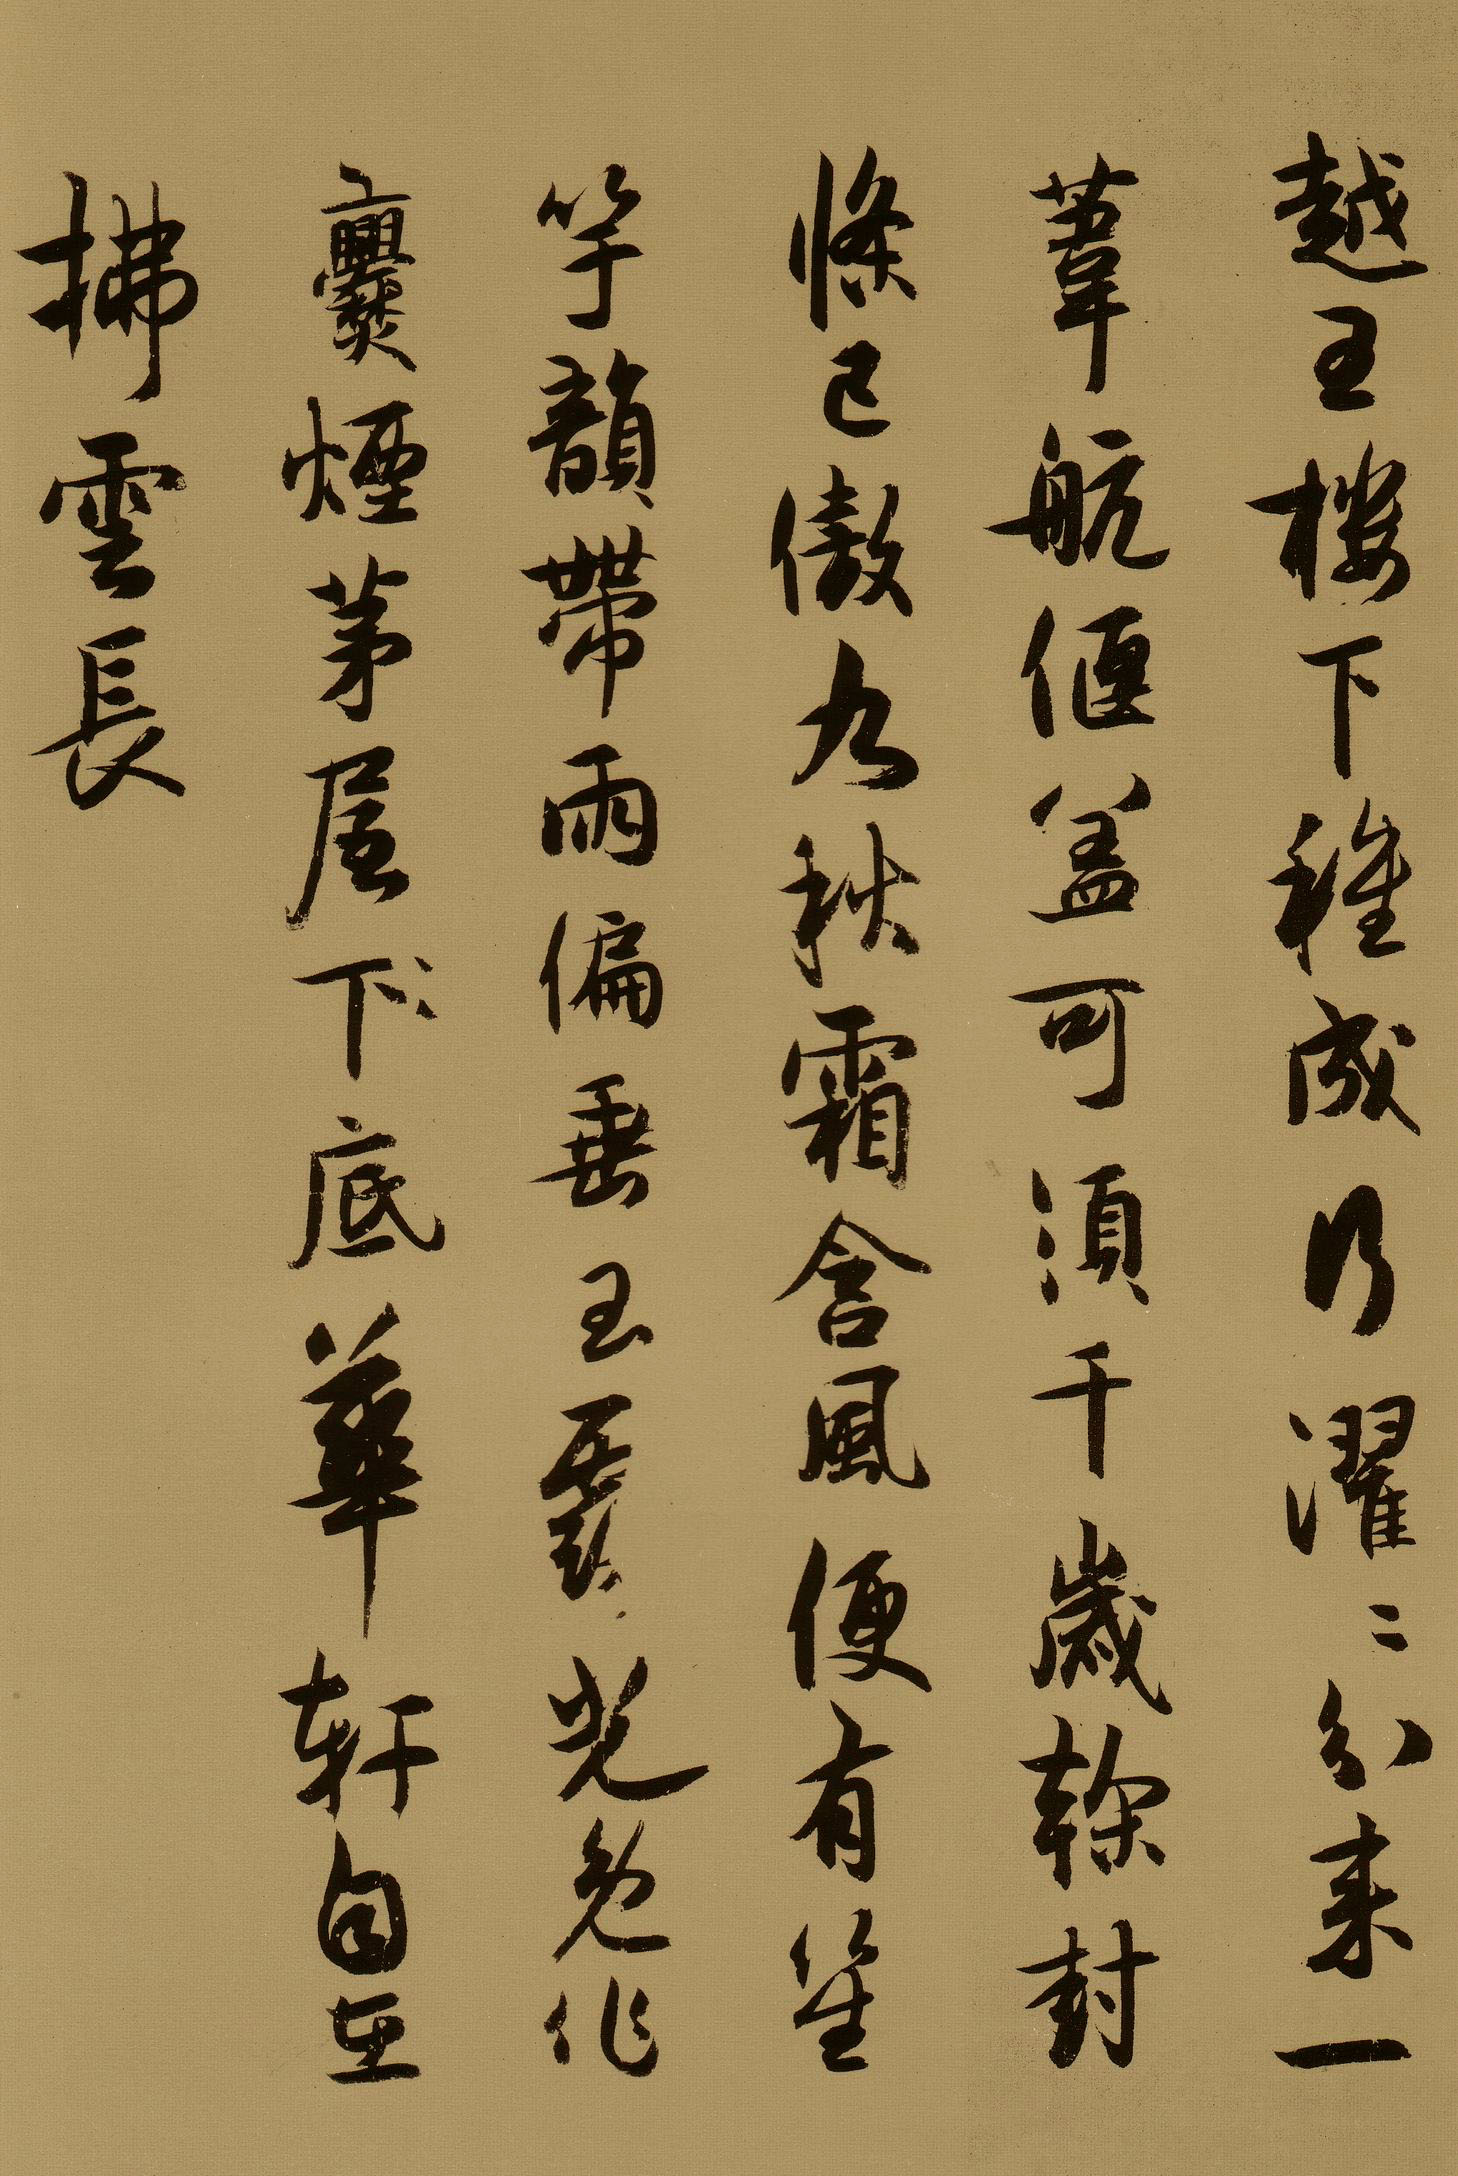 越王樓下稚成行濯〻分来一
葦航偃盖可須千歲榦封
條已傲九秋霜含風便有笙
竽韻帶雨偏垂玉露光免作
爨煙茅屋下底華軒自在
拂雲長